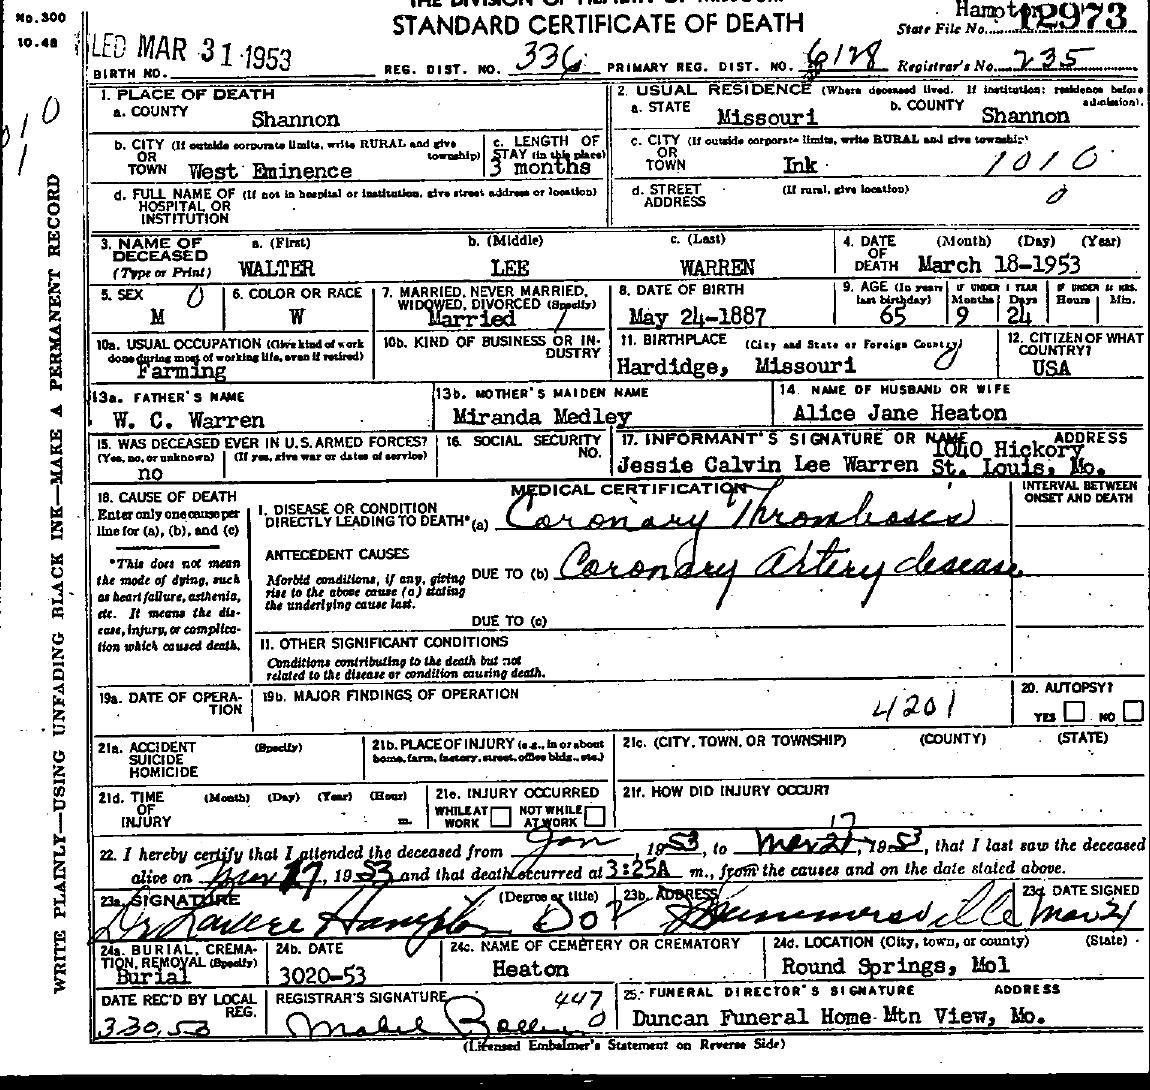 No.300
10.48
WRITE PLAINLY—USING UNFADING BLACK INK—MAKE A PERMANENT RECORD
THE DIVISION OF HEALTH OF MISSOURI
STANDARD CERTIFICATE OF DEATH
Hampton
State File No. 12973
LED MAR 31 1953
BIRTH NO.
REG. DIST. NO. 336
PRIMARY REG. DIST. NO. 6128
Registrar's No. 235
1. PLACE OF DEATH
a. COUNTY
Shannon
2. USUAL RESIDENCE (Where deceased lived. If institution: residence before admission).
a. STATE Missouri
b. COUNTY Shannon
b. CITY (If outside corporate limits, write RURAL and give township)
OR
TOWN West Eminence
c. LENGTH OF
STAY (in this place)
3 months
c. CITY (If outside corporate limits, write RURAL and give township)
OR
TOWN Ink
1010
d. FULL NAME OF (If not in hospital or institution, give street address or location)
HOSPITAL OR
INSTITUTION
d. STREET (If rural, give location)
ADDRESS
0
3. NAME OF DECEASED
(Type or Print)
a. (First) WALTER
b. (Middle) LEE
c. (Last) WARREN
4. DATE OF DEATH (Month) (Day) (Year)
March 18-1953
5. SEX 0
M
6. COLOR OR RACE
W
7. MARRIED, NEVER MARRIED,
WIDOWED, DIVORCED (Specify)
Married 1
8. DATE OF BIRTH
May 24-1887
9. AGE (In years last birthday) 65
IF UNDER 1 YEAR Months 9 Days 24
IF UNDER 24 HRS. Hours Min.
10a. USUAL OCCUPATION (Give kind of work
done during most of working life, even if retired)
Farming
10b. KIND OF BUSINESS OR INDUSTRY
11. BIRTHPLACE (City and State or Foreign Country)
Hardidge, Missouri 0
12. CITIZEN OF WHAT COUNTRY?
USA
13a. FATHER'S NAME
W. C. Warren
13b. MOTHER'S MAIDEN NAME
Miranda Medley
14. NAME OF HUSBAND OR WIFE
Alice Jane Heaton
15. WAS DECEASED EVER IN U.S. ARMED FORCES?
(Yes, no, or unknown) (If yes, give war or dates of service)
no
16. SOCIAL SECURITY NO.
17. INFORMANT'S SIGNATURE OR NAME ADDRESS
1040 Hickory
Jessie Calvin Lee Warren St. Louis, Mo.
18. CAUSE OF DEATH
Enter only one cause per
line for (a), (b), and (c)
*This does not mean
the mode of dying, such
as heart failure, asthenia,
etc. It means the dis-
ease, injury, or complica-
tion which caused death.
MEDICAL CERTIFICATION
INTERVAL BETWEEN
ONSET AND DEATH
I. DISEASE OR CONDITION
DIRECTLY LEADING TO DEATH* (a) Coronary Thrombosis
ANTECEDENT CAUSES
Morbid conditions, if any, giving
rise to the above cause (a) stating
the underlying cause last.
DUE TO (b) Coronary artery disease
DUE TO (c)
II. OTHER SIGNIFICANT CONDITIONS
Conditions contributing to the death but not
related to the disease or condition causing death.
19a. DATE OF OPERA-
TION
19b. MAJOR FINDINGS OF OPERATION
4201
20. AUTOPSY?
YES NO
21a. ACCIDENT (Specify)
SUICIDE
HOMICIDE
21b. PLACE OF INJURY (e.g., in or about
home, farm, factory, street, office bldg., etc.)
21c. (CITY, TOWN, OR TOWNSHIP) (COUNTY) (STATE)
21d. TIME (Month) (Day) (Year) (Hour)
OF
INJURY m.
21e. INJURY OCCURRED
WHILE AT WORK NOT WHILE AT WORK
21f. HOW DID INJURY OCCUR?
17
22. I hereby certify that I attended the deceased from Jan, 1953, to Mar 21, 1953, that I last saw the deceased
alive on Mar 17, 1953 and that death occurred at 3:25A m., from the causes and on the date stated above.
23a. SIGNATURE (Degree or title)
Dr Hampton DO
23b. ADDRESS
Summersville
23c. DATE SIGNED
Mar 21
24a. BURIAL, CREMA-
TION, REMOVAL (Specify)
Burial
24b. DATE
3020-53
24c. NAME OF CEMETERY OR CREMATORY
Heaton
24d. LOCATION (City, town, or county) (State)
Round Springs, Mol
DATE REC'D BY LOCAL
REG.
3.30.53
REGISTRAR'S SIGNATURE 447
Mabel 0
25. FUNERAL DIRECTOR'S SIGNATURE ADDRESS
Duncan Funeral Home Mtn View, Mo.
(Licensed Embalmer's Statement on Reverse Side)